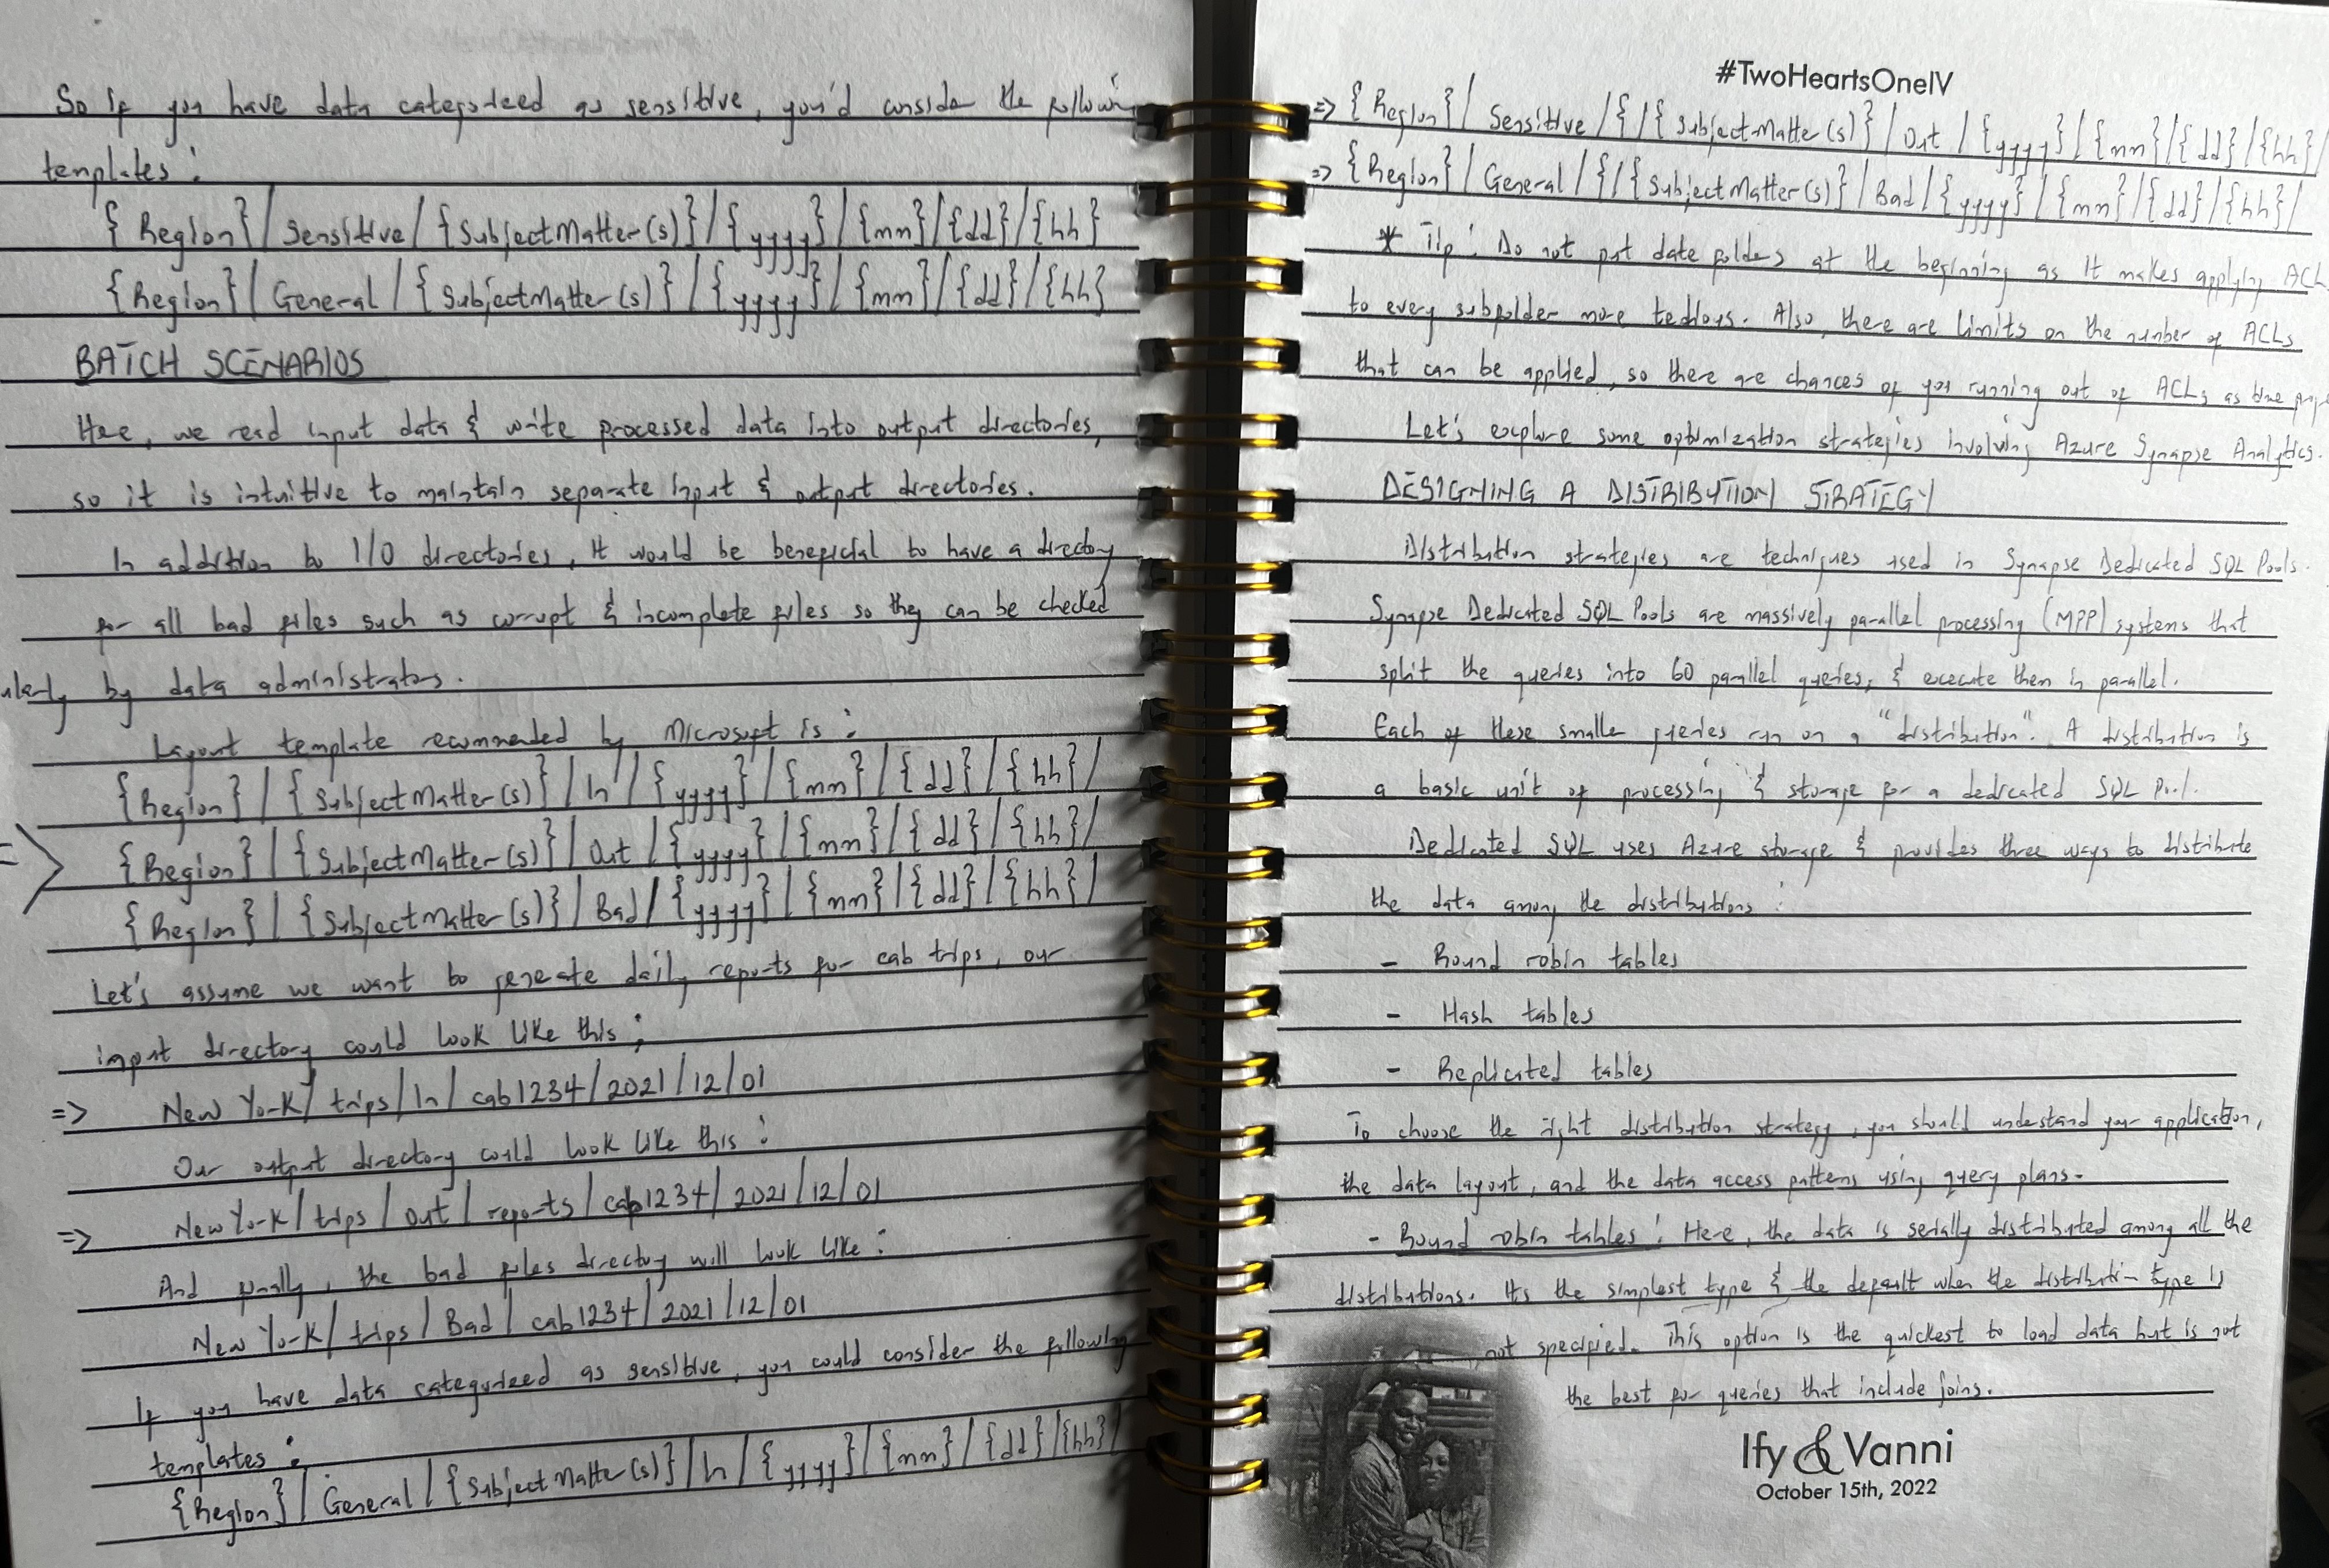 So if you have data categorized as sensitive, you'd consider the followin
templates:
{Region}/Sensitive/{SubjectMatter(s)}/{yyyy}/{mm}/{dd}/{hh}
{Region}/General/{SubjectMatter(s)}/{yyyy}/{mm}/{dd}/{hh}
BATCH SCENARIOS
Here, we read input data & write processed data into output directories,
so it is intuitive to maintain separate input & output directories.
In addition to I/O directories, it would be beneficial to have a directory
for all bad files such as corrupt & incomplete files so they can be checked
ularly by data administrators.
Layout template recommended by Microsoft is:
{Region}/{SubjectMatter(s)}/In/{yyyy}/{mm}/{dd}/{hh}/
=> {Region}/{SubjectMatter(s)}/Out/{yyyy}/{mm}/{dd}/{hh}/
{Region}/{SubjectMatter(s)}/Bad/{yyyy}/{mm}/{dd}/{hh}/
Let's assume we want to generate daily reports for cab trips, our
input directory could look like this;
=> New York/trips/In/cab1234/2021/12/01
Our output directory could look like this:
=> New York/trips/Out/reports/cab1234/2021/12/01
And finally, the bad files directory will look like:
New York/trips/Bad/cab1234/2021/12/01
If you have data categorized as sensitive, you could consider the following
templates:
{Region}/General/{SubjectMatter(s)}/In/{yyyy}/{mm}/{dd}/{hh}/
#TwoHeartsOneIV
=> {Region}/Sensitive/{/{SubjectMatter(s)}/Out/{yyyy}/{mm}/{dd}/{hh}/
=> {Region}/General/{/{SubjectMatter(s)}/Bad/{yyyy}/{mm}/{dd}/{hh}/
* Tip: Do not put date folders at the beginning as it makes applying ACL
to every subfolder more tedious. Also, there are limits on the number of ACLs
that can be applied, so there are chances of you running out of ACLs as time
Let's explore some optimization strategies involving Azure Synapse Analytics.
DESIGNING A DISTRIBUTION STRATEGY
Distribution strategies are techniques used in Synapse Dedicated SQL Pools.
Synapse Dedicated SQL Pools are massively parallel processing (MPP) systems that
split the queries into 60 parallel queries, & execute them in parallel.
Each of these smaller queries run on a "distribution". A distribution is
a basic unit of processing & storage for a dedicated SQL Pool.
Dedicated SQL uses Azure storage & provides three ways to distribute
the data among the distributions:
- Round robin tables
- Hash tables
- Replicated tables
To choose the right distribution strategy, you should understand your application,
the data layout, and the data access patterns using query plans.
- Round robin tables: Here, the data is serially distributed among all the
distributions. It's the simplest type & the default when the distribution type is
not specified. This option is the quickest to load data but is not
the best for queries that include joins.
Ify & Vanni
October 15th, 2022